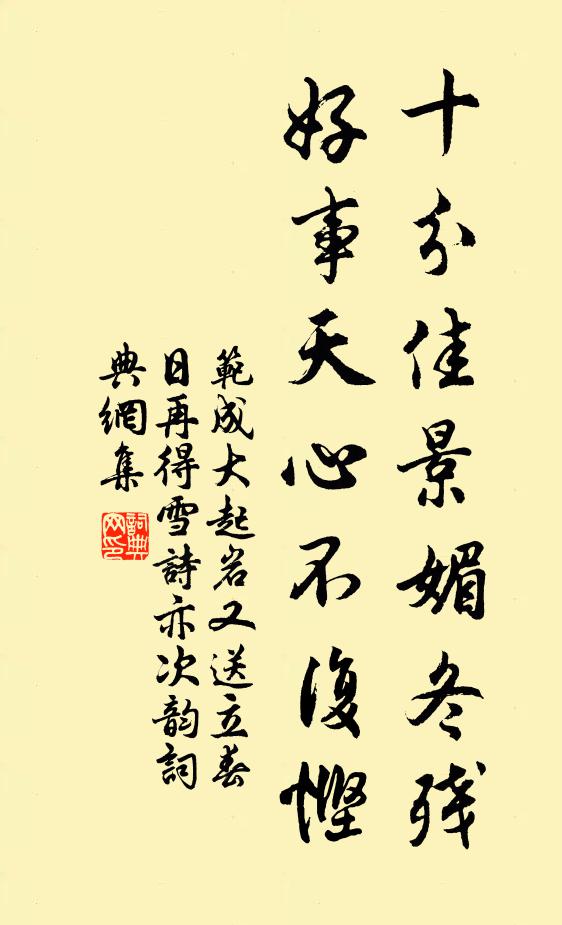 十分佳景媚冬残
好事天心不復慳
範成大起岩又送立春
日再得雪詩亦次韵詞
典網集
詞典
网印